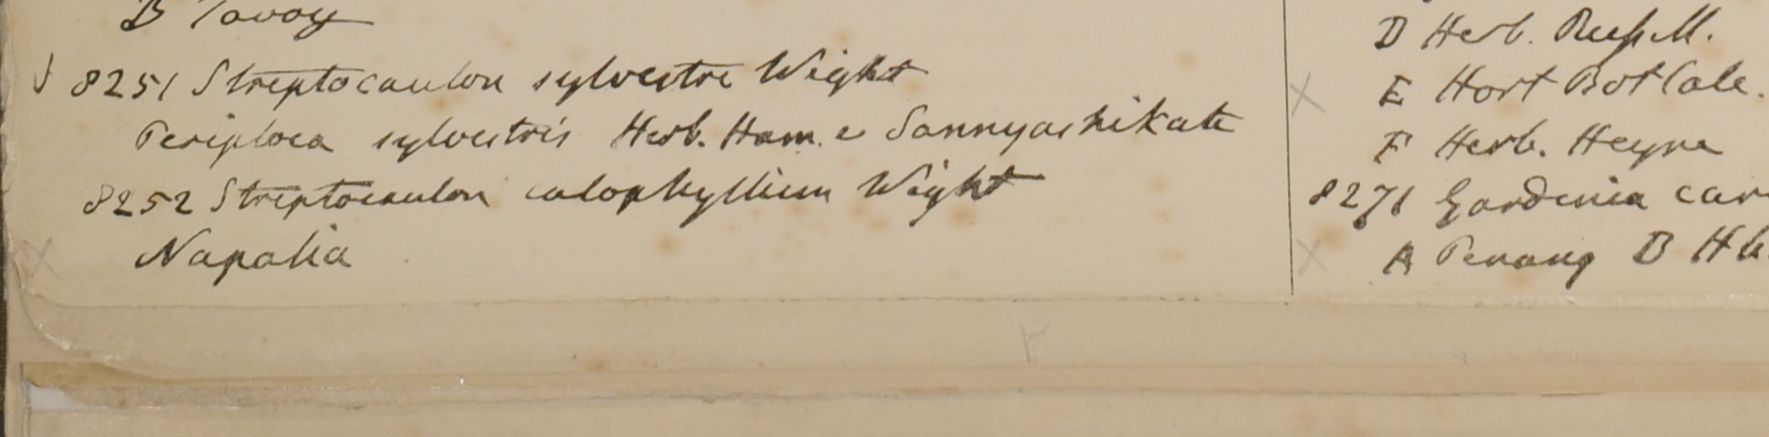 B Tavoy
8251 Streptocaulon sylvestre Wight
Periploca sylvestris Herb. Ham. e Sannyashikate
8252 Streptocaulon calophyllum Wight
Napalia
D Herb. Russell.
E Hort Bot Calc.
F Herb. Heyne
8271 Gardenia car
A Penang B Hb